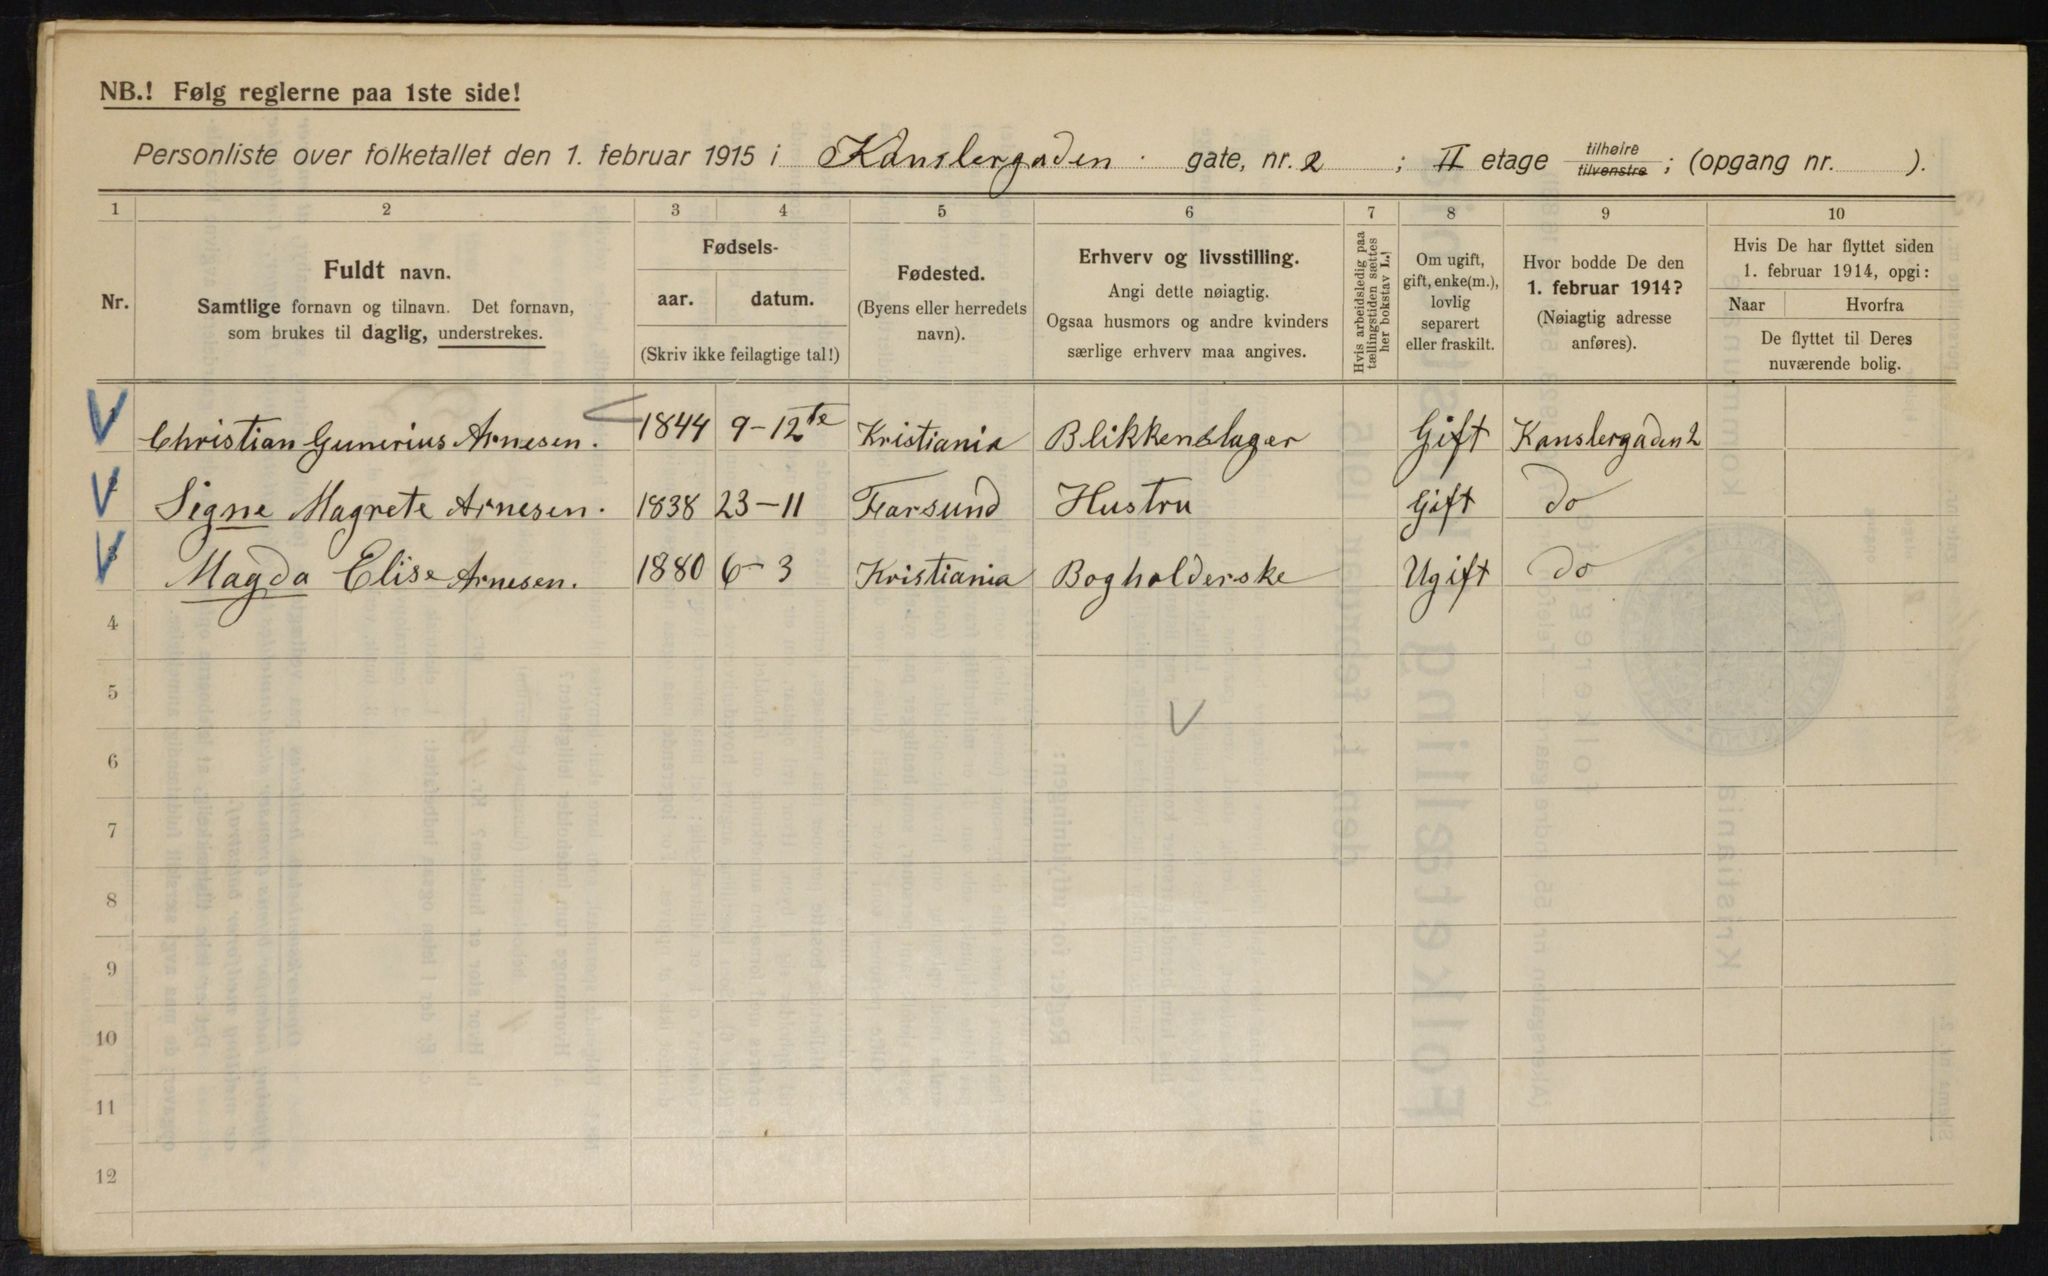 NB.! Følg reglerne paa 1ste side!
Personliste over folketallet den 1. februar 1915 i Kanslergaden gate, nr. 2 ; II etage tilhøire tilvenstre ; (opgang nr. ).
1 2 3 4 5 6 7 8 9 10
Nr.
Fuldt navn.
Samtlige fornavn og tilnavn. Det fornavn,
som brukes til daglig, understrekes.
Fødsels-
aar. datum.
(Skriv ikke feilagtige tal!)
Fødested.
(Byens eller herredets
navn).
Erhverv og livsstilling.
Angi dette nøiagtig.
Ogsaa husmors og andre kvinders
særlige erhverv maa angives.
Hvis arbeidsledig paa
tællingstiden sættes
her bokstav L.!
Om ugift,
gift, enke(m.),
lovlig
separert
eller fraskilt.
Hvor bodde De den
1. februar 1914?
(Nøiagtig adresse
anføres).
Hvis De har flyttet siden
1. februar 1914, opgi:
Naar Hvorfra
De flyttet til Deres
nuværende bolig.
Christian Gunerius Arnesen. 1844 9-12te Kristiania Blikkenslager Gift Kanslergaden 2
Signe Magrete Arnesen. 1838 23-11 Farsund Hustru Gift do
Magda Elise Arnesen. 1880 6-3 Kristiania Bogholderske Ugift do
4
5
6
7
8
9
10
11
12